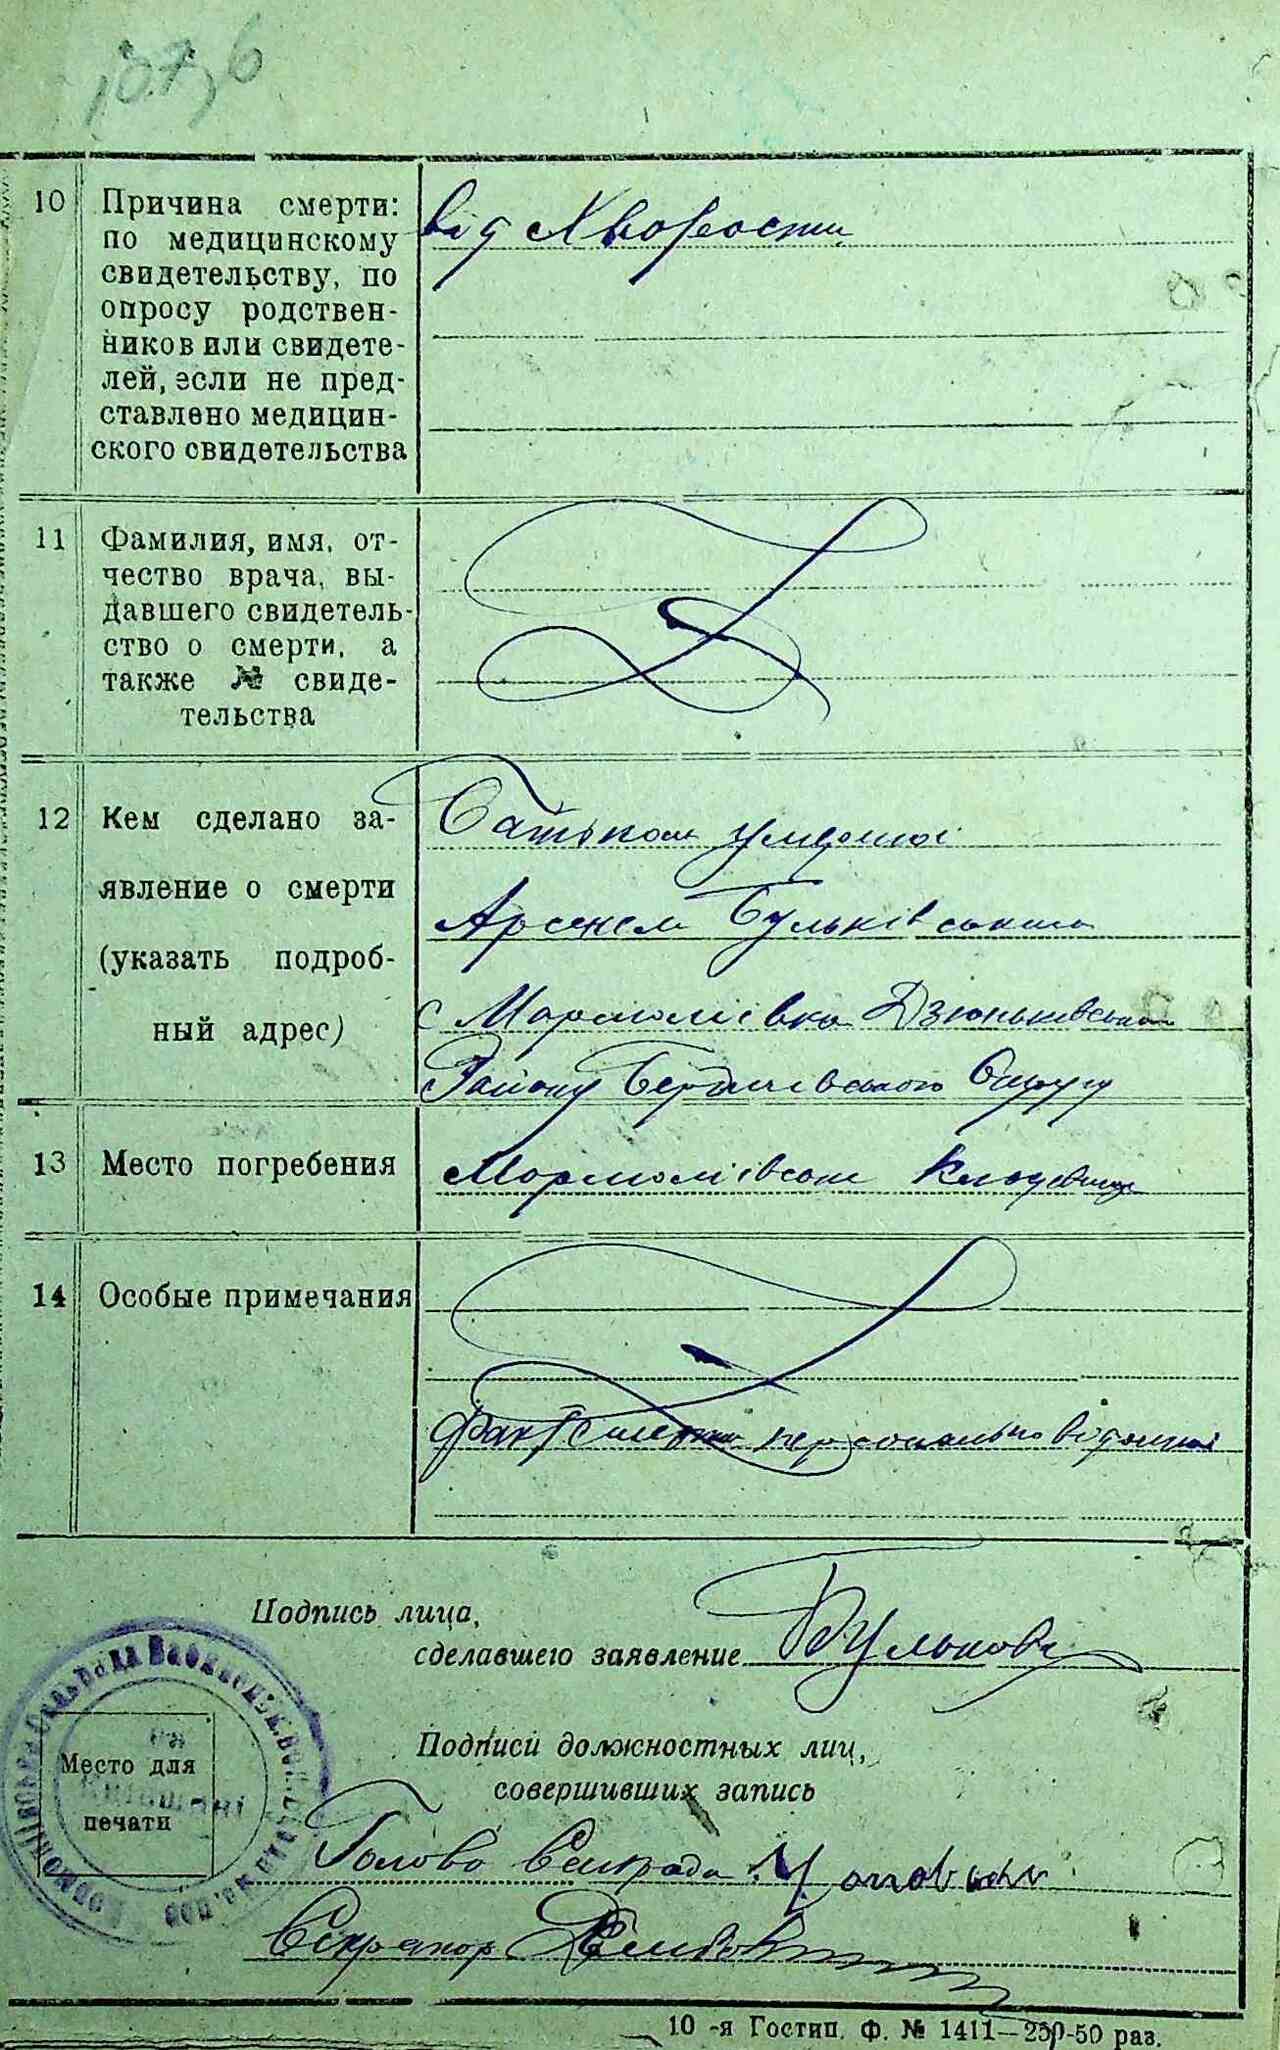 10 Причина смерти:
по медицинскому
свидетельству, по
опросу родствен-
ников или свидете-
лей, если не пред-
ставлено медицин-
ского свидетельства
від Хворости
11 Фамилия, имя, от-
чество врача, вы-
давшего свидетель-
ство о смерти, а
также № свиде-
тельства
12 Кем сделано за-
явление о смерти
(указать подроб-
ный адрес)
Батьком умершої
Арсенем Бульківським
с Мармоліївка Дзюньківського
Району Бердичівського Округу
13 Место погребения
Мармоліївське Кладовище
14 Особые примечания
Факт смерти персонально відомий
Подпись лица,
сделавшего заявление
Подписи должностных лиц,
совершивших запись
Место для
печати
Голова Сельрады
Секретар
10-я Гостип. Ф. № 1411—250-50 раз.